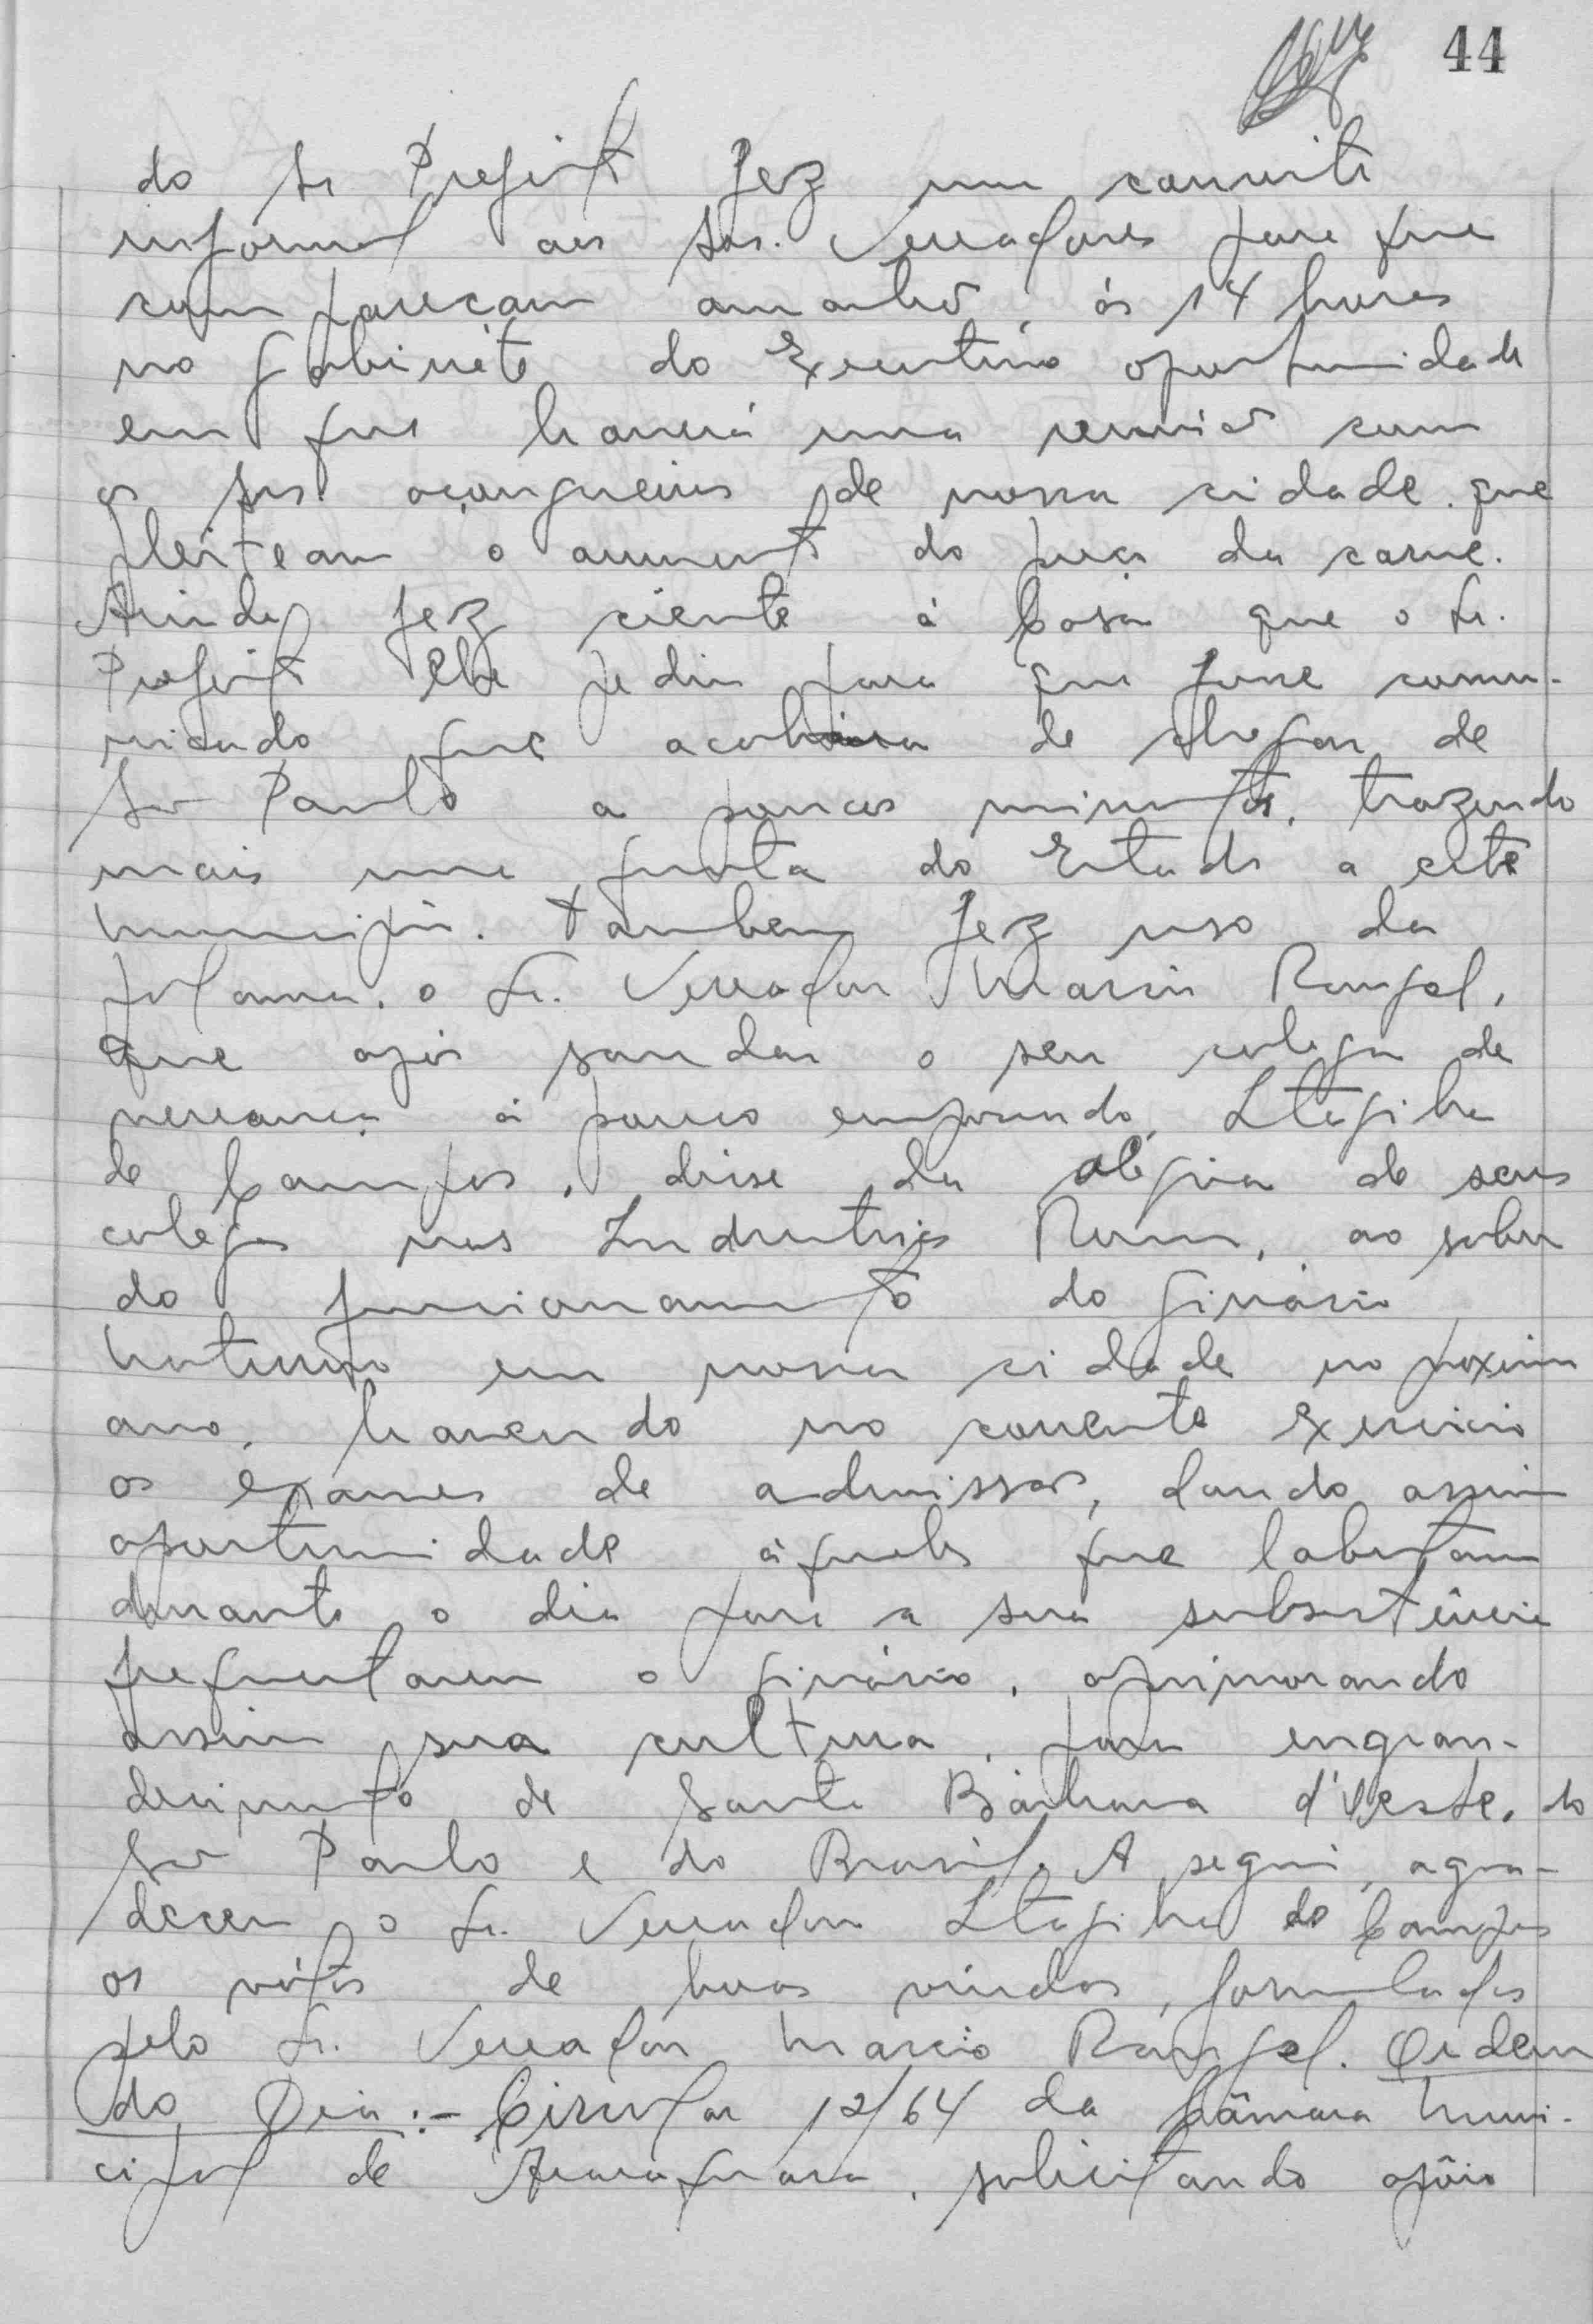 44
do Sr Prefeito fez um convite
informal aos Srs. Vereadores para que
compareçam amanhã, ás 14 horas
no gabinete do Executivo oportunidade
em que haverá uma reunião com
os srs. açougueiros de nossa cidade. que
pleiteam o aumento do preço da carne.
Ainda fez ciente á Casa que o Sr.
Prefeito lhe pediu para que fosse comu-
nicado que acabava de chegar de
São Paulo a poucos minutos, trazendo
mais uma junta do Estado a este
município. Tambem fez uso da
palavra. o Sr. Vereador Marcio Rangel,
que após saudar o seu colega de
vereança á pouco empossado,
de Campos, disse da alegria de seus
colegas nas Industrias Romi, ao saber
do funcionamento do ginásio
noturno em nossa cidade no proximo
ano, havendo no corrente exercicio
os exames de admissão, dando assim
oportunidade áqueles que labutam
durante o dia para a sua subsistência
frequentarem o ginásio, aprimorando
assim sua cultura, para engran-
decimento de Santa Bárbara d'Oeste, do
São Paulo e do Brasil. A seguir, agra-
deceu o Sr. Vereador de Campos
os vótos de boas vindas, formulados
pelo Sr. Vereador Marcio Rangel. Ordem
do Dia:- Circular 12/64 da Câmara Muni-
cipal de Araraquara, solicitando apôio